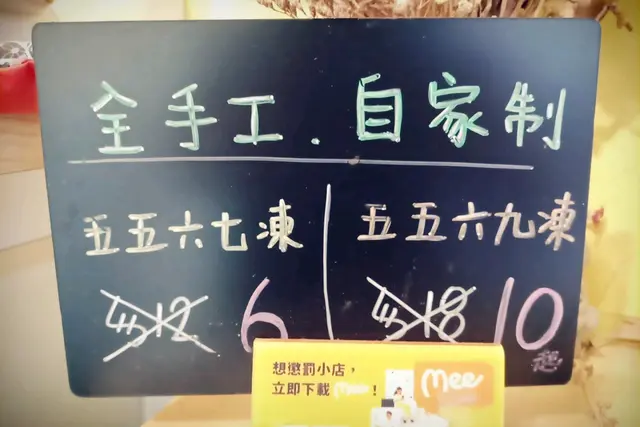 全手工.自家制
五五六七凍
五五六九凍
$12 6
$18 10起
想懲罰小店，
立即下載Mee！
Mee